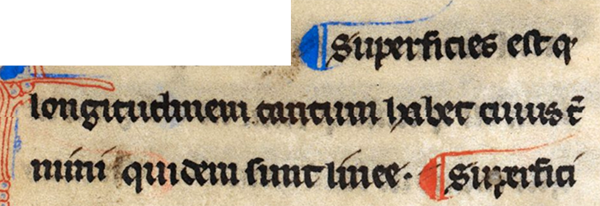 ¶ Superficies est q
longitudinem tantum habet cuius t̄
mini quidem sunt linee. ¶ Superfici